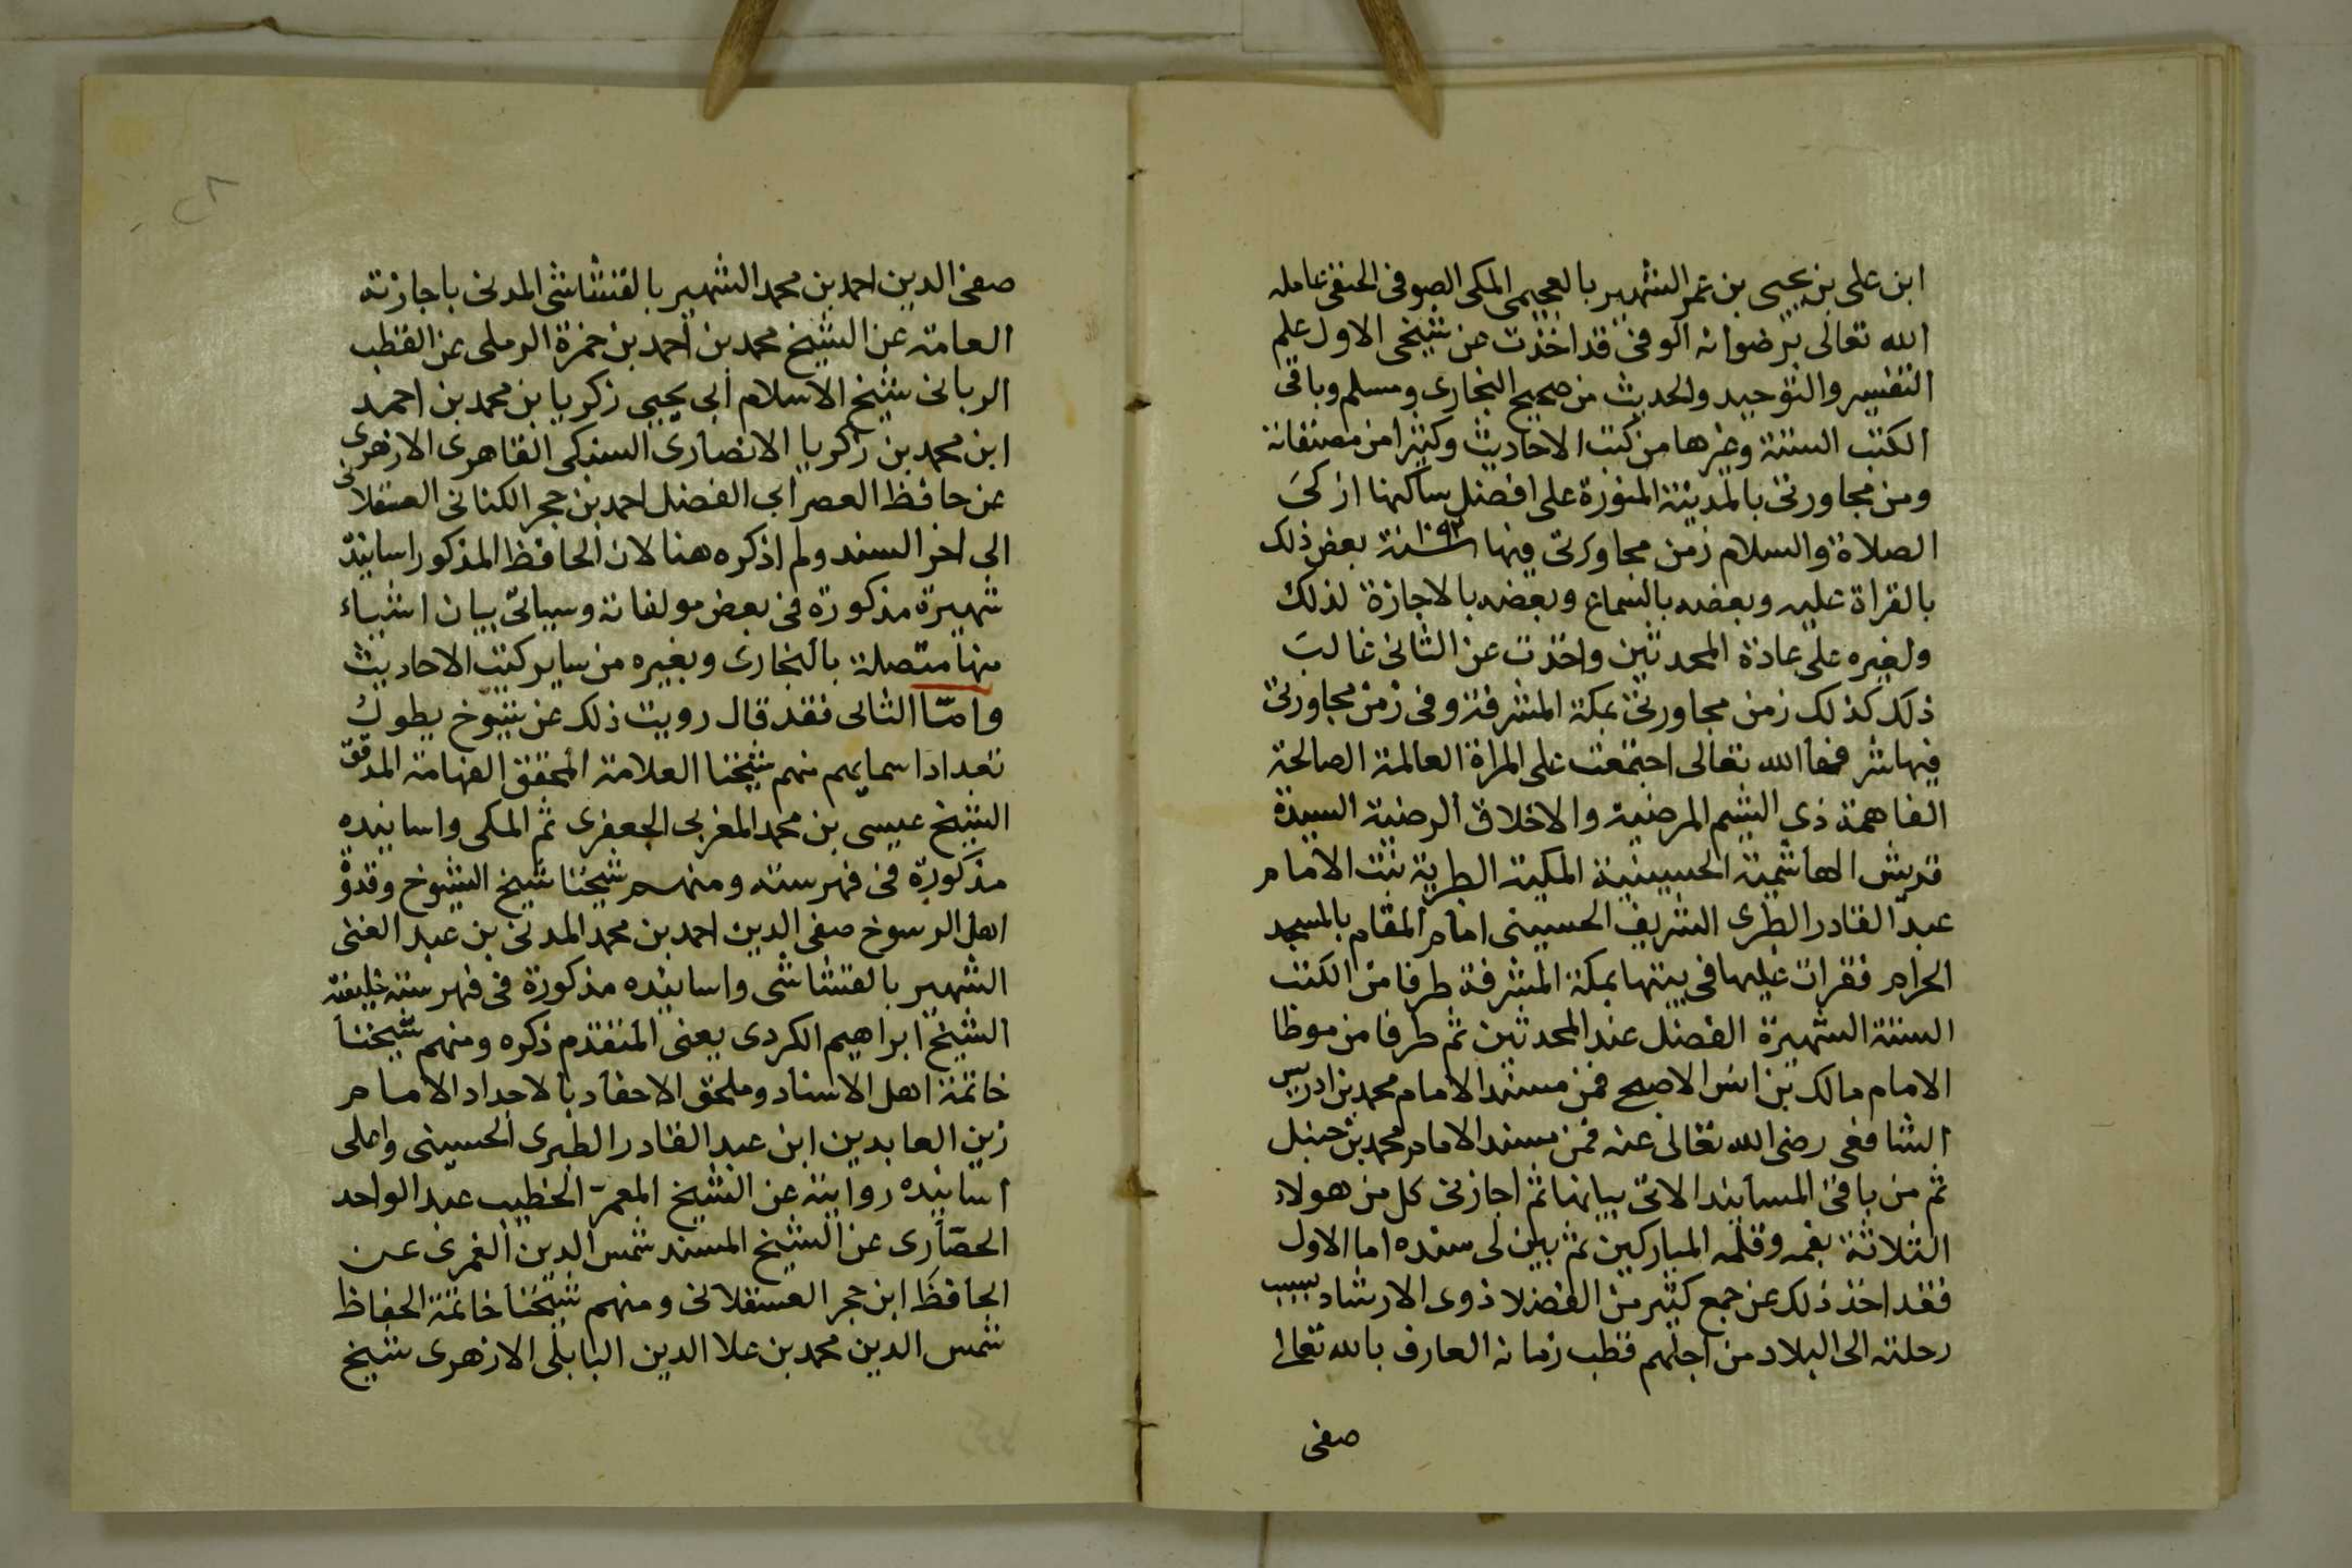 ابن على بن يحيى بن عمر الشهير بالعجيمى المكى الصوفى الحنفى عامله
الله تعالى برضوانه الوفى قد اخذت عن شيخى الاول علم
التفسير والتوحيد والحديث من صحيح البخارى ومسلم وباقى
الكتب الستة وغيرها من كتب الاحاديث وكثيرا من مصنفاته
ومن مجاورتى بالمدينة المنورة على افضل ساكنها ازكى
الصلاة والسلام زمن مجاورتى فيها سنة بعض ذلك
بالقراة عليه وبعضه بالسماع وبعضه بالاجازة لذلك
ولغيره على عادة المحدثين واخذت عن الثانى غالب
ذلك كذلك زمن مجاورتى بمكة المشرفة وفى زمن مجاورتى
فيها شرفها الله تعالى اجتمعت على المراة العالمة الصالحة
الفاهمة ذى الشيم المرضية والاخلاق الرضية السيدة
قريش الهاشمية الحسينية المكية الطبرية بنت الامام
عبد القادر الطبرى الشريف الحسينى امام المقام بالمسجد
الحرام فقرات عليها فى بيتها بمكة المشرفة طرفا من الكتب
الستة الشهيرة الفضل عند المحدثين ثم طرفا من موطا
الامام مالك بن انس الاصبحى فمن مسند الامام محمد بن ادريس
الشافعى رضى الله تعالى عنه فمن مسند الامام محمد بن حنبل
ثم من باقى المسانيد الاتى بيانها ثم اجازنى كل من هولاء
الثلاثة بفمه وقلمه المباركين ثم بين لى سنده اما الاول
فقد اخذ ذلك عن جمع كثير من الفضلا ذوى الارشاد بسبب
رحلته الى البلاد من اجلهم قطب زمانه العارف بالله تعالى
صفى
صفى الدين احمد بن محمد الشهير بالقشاشى المدنى باجازته
العامة عن الشيخ محمد بن احمد بن حمزة الرملى عن القطب
الربانى شيخ الاسلام ابى يحيى زكريا بن محمد بن احمد
ابن محمد بن زكريا الانصارى السنكى القاهرى الازهرى
عن حافظ العصر ابى الفضل احمد بن حجر الكنانى العسقلانى
الى اخر السند ولم اذكره هنا لان الحافظ المذكور اسانيده
شهيرة مذكورة فى بعض مولفاته وسياتى بيان اشياء
منها متصلة بالبخارى وبغيره من ساير كتب الاحاديث
وامّا الثانى فقد قال رويت ذلك عن شيوخ يطول
تعداد اسمايهم منهم شيخنا العلامة المحقق الفهامة المدقق
الشيخ عيسى بن محمد المغربى الجعفرى ثم المكى واسانيده
مذكورة فى فهرسته ومنهم شيخنا شيخ الشيوخ وقدوة
اهل الرسوخ صفى الدين احمد بن محمد المدنى بن عبد الغنى
الشهير بالقشاشى واسانيده مذكورة فى فهرسته خليفته
الشيخ ابراهيم الكردى يعنى المتقدم ذكره ومنهم شيخنا
خاتمة اهل الاسناد وملحق الاحفاد بالاجداد الامام
زين العابدين ابن عبد القادر الطبرى الحسينى واعلى
اسانيده روايته عن الشيخ المعمّر الخطيب عبد الواحد
الحصّارى عن الشيخ المسند شمس الدين الغمرى عن
الحافظ ابن حجر العسقلانى ومنهم شيخنا خاتمة الحفاظ
شمس الدين محمد بن علا الدين البابلى الازهرى شيخ